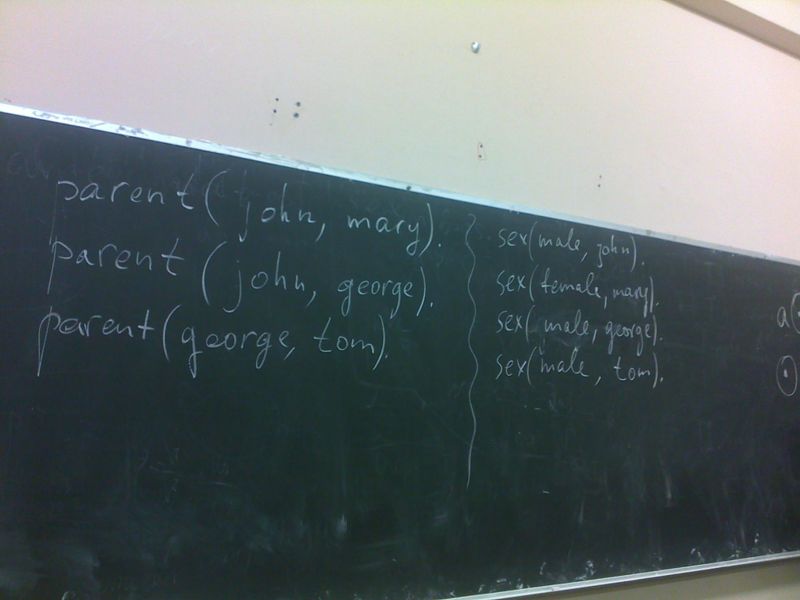 parent(john, mary).
parent(john, george).
parent(george, tom).
sex(male, john).
sex(female, mary).
sex(male, george).
sex(male, tom).
a(